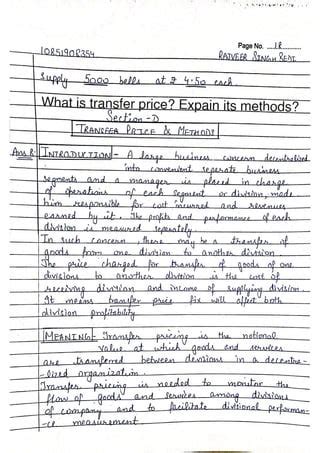 Page No. 18
10851908354
RAJVEER SINGH BEDI
Supply 5000 bells at ₹ 4.50 each.
What is transfer price? Expain its methods?
Section-D
TRANSFER PRICE & METHODS
Ans 8: INTRODUCTION - A large business concern decentralized
into convenient seperate business
segments and a manager is placed in charge
of operations of each segment or division, made
him responsible for cost incurred and revenues
earned by it. The profits and performance of each
division is measured seperately.
In such concern, there may be a transfer of
goods from one division to another division.
The price charged for transfer of goods of one
divisions to another division is the cost of
receiving division and income of supplying division.
It means transfer price fix will affect both
division profitability.
MEANING:- Transfer pricing is the notional
value at which goods and services
are transferred between devisions in a decentra-
-lized organization.
Transfer pricing is needed to monitor the
flow of goods and services among divisions
of company and to facilitate divisional performan-
-ce measurement.